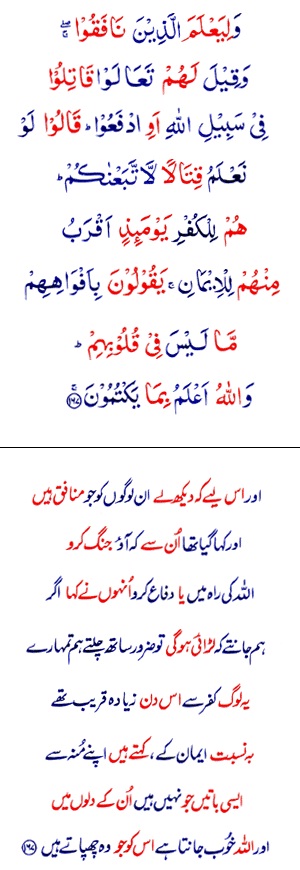 وَلِيَعْلَمَ الَّذِيْنَ نَافَقُوْا ۖۚ
وَقِيْلَ لَهُمْ تَعَالَوْا قَاتِلُوْا
فِيْ سَبِيْلِ اللّٰهِ اَوِ ادْفَعُوْا ؕ قَالُوْا لَوْ
نَعْلَمُ قِتَالًا لَّا تَّبَعْنٰكُمْ ؕ
هُمْ لِلْكُفْرِ يَوْمَئِذٍ اَقْرَبُ
مِنْهُمْ لِلْاِيْمَانِ ۚ يَقُوْلُوْنَ بِاَفْوَاهِهِمْ
مَّا لَيْسَ فِيْ قُلُوْبِهِمْ ؕ
وَاللّٰهُ اَعْلَمُ بِمَا يَكْتُمُوْنَ ۚ ﴿۱۶۷﴾
اور اس لیے کہ دیکھ لے ان لوگوں کو جو منافق ہیں
اور کہا گیا تھا اُن سے کہ آؤ جنگ کرو
اللہ کی راہ میں یا دفاع کرو اُنہوں نے کہا اگر
ہم جانتے کہ لڑائی ہوگی تو ضرور ساتھ چلتے ہم تمہارے
یہ لوگ کفر سے اس دن زیادہ قریب تھے
بہ نسبت ایمان کے ، کہتے ہیں اپنے مُنہ سے
ایسی باتیں جو نہیں ہیں اُن کے دلوں میں
اور اللہ خُوب جانتا ہے اس کو جو وہ چھپاتے ہیں ﴿۱۶۷﴾